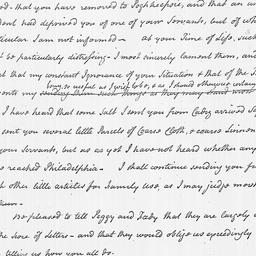 od - that you have removed to Poghkeepsie, and that an un
dent had deprived you of one of your Servants, but of wh
ticular I am not informed - at your Time of Life, such
t be particularly distressing - I most sincerely lament them, and
at that my constant Ignorance of your Situation & that of the
long, so useful as I wish to be, & as I should otherwise certainly
vents my sending them such things as they may stand most
I have heard that some Salt I sent you from Cadiz arrived Saf
sent you several little Parcels of Coarse Cloth, & coarse Linnen
your Servants, but as yet I have not heard whether any
s reached Philadelphia - I shall continue sending you fu
h other little articles for Family Use, as I may judge most
lcom -
Be pleased to tell Peggy and Fady that they are largely in
the Score of Letters - and that they would oblige us exceedingly
telling us how you all do.